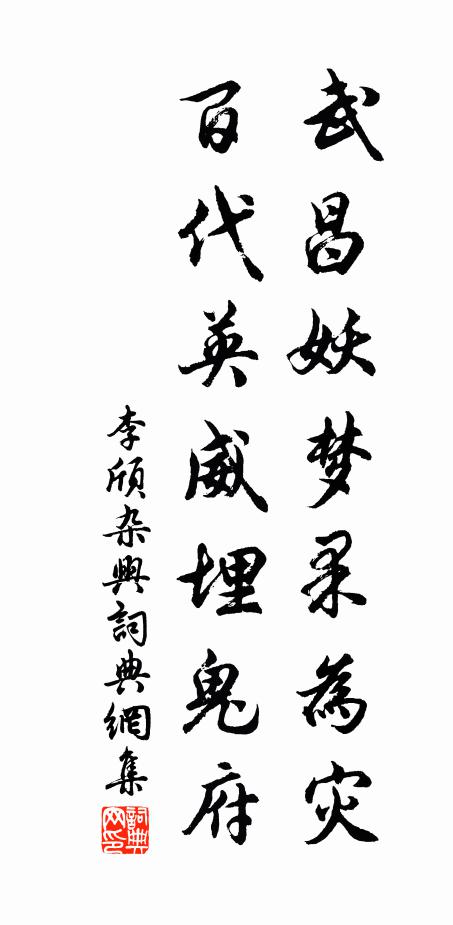 武昌妖梦果为灾
百代英威埋鬼府
李颀杂興詞典網集
詞典网印